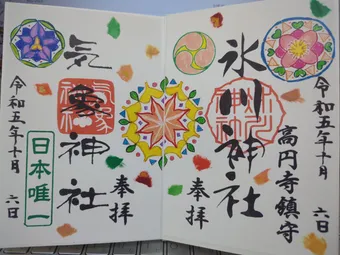 令和五年十月 六日
高円寺鎮守
氷川神社
奉拝
奉拝
気象神社
日本唯一
令和五年十月 六日